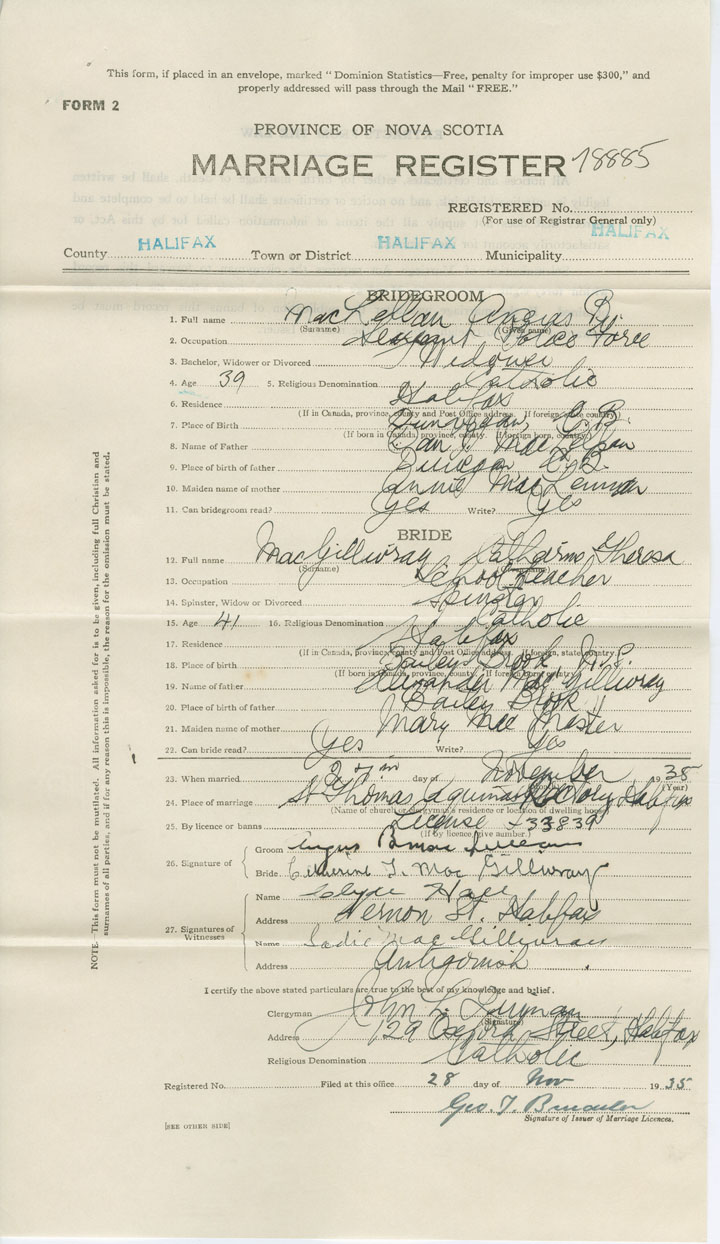 This form, if placed in an envelope, marked "Dominion Statistics—Free, penalty for improper use $300," and
properly addressed will pass through the Mail "FREE."
FORM 2
PROVINCE OF NOVA SCOTIA
MARRIAGE REGISTER 18885
REGISTERED No.
(For use of Registrar General only)
County HALIFAX Town or District HALIFAX Municipality HALIFAX
BRIDEGROOM
1. Full name MacLellan Angus
(Surname) (Given name)
2. Occupation Sergeant Police Force
3. Bachelor, Widower or Divorced Widower
4. Age 39 5. Religious Denomination Catholic
6. Residence Halifax
(If in Canada, province, county and Post Office address. If foreign, state country.)
7. Place of Birth Dunvegan, C.B.
(If born in Canada, province, county. If foreign born, country.)
8. Name of Father MacLellan
9. Place of birth of father C.B.
10. Maiden name of mother Annie MacLennan
11. Can bridegroom read? Yes Write? Yes
BRIDE
12. Full name MacGillivray Catharine Theresa
(Surname)
13. Occupation School Teacher
14. Spinster, Widow or Divorced Spinster
15. Age 41 16. Religious Denomination Catholic
17. Residence Halifax
(If in Canada, province, county and Post Office address. If foreign, state country.)
18. Place of birth Bailey's Brook, N.S.
(If born in Canada, province, county. If foreign born, country.)
19. Name of father Alexander MacGillivray
20. Place of birth of father Bailey's Brook
21. Maiden name of mother Mary Mac Master
22. Can bride read? Yes Write? Yes
23. When married 27th day of November 1935
(Year)
24. Place of marriage St Thomas Aquinas Rectory, Halifax
(Name of church or clergyman's residence or location of dwelling house)
25. By licence or banns License 533839
(If by licence, give number.)
26. Signature of
Groom Angus B MacLellan
Bride Catherine T. MacGillivray
27. Signatures of Witnesses
Name Clyde Hall
Address Vernon St. Halifax
Name Sadie MacGillivray
Address Antigonish
I certify the above stated particulars are true to the best of my knowledge and belief.
Clergyman John L.
(Signature)
Address 129 Oxford Street, Halifax
Religious Denomination Catholic
Registered No. Filed at this office 28 day of Nov 1935
Geo. T.
Signature of Issuer of Marriage Licences.
[SEE OTHER SIDE]
NOTE.—This form must not be mutilated. All information asked for is to be given, including full Christian and
surnames of all parties, and if for any reason this is impossible, the reason for the omission must be stated.